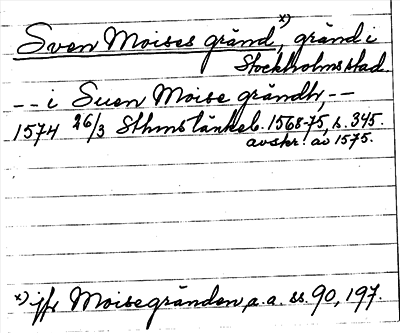 Sven Moises gränd, x) gränd i
Stockholms stad
-- i Suen Moise grändh, --
1574 26/3 Sthms tänkeb. 1568-75, s. 345.
avskr. av 1575.
x) jfr Moisegränden, a. a. ss. 90, 197.